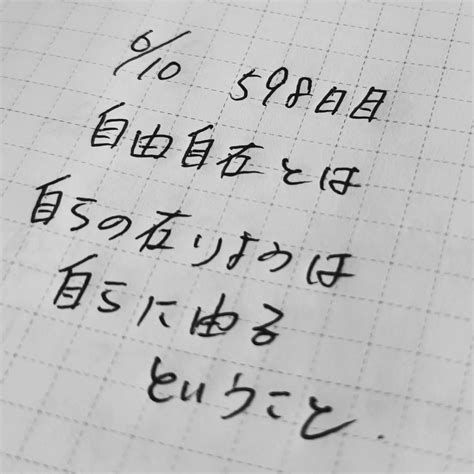 6/10 598日目
自由自在とは
自らの在りようは
自らに由る
ということ.